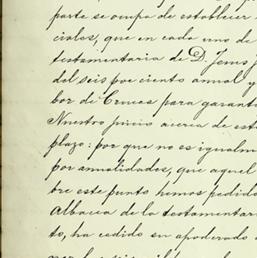 parte se ocupa de establecer
ciales, que en cada uno de
testamentaria de D. Jesus
del seis por ciento anual y
bor de Cruces para garant
Nuestro juicio acerca de est
plazo: por que no es igualm
por anualidades, que aquel
bre este punto hemos pedido
Albacea de la testamentar
to, ha cedido su apoderado